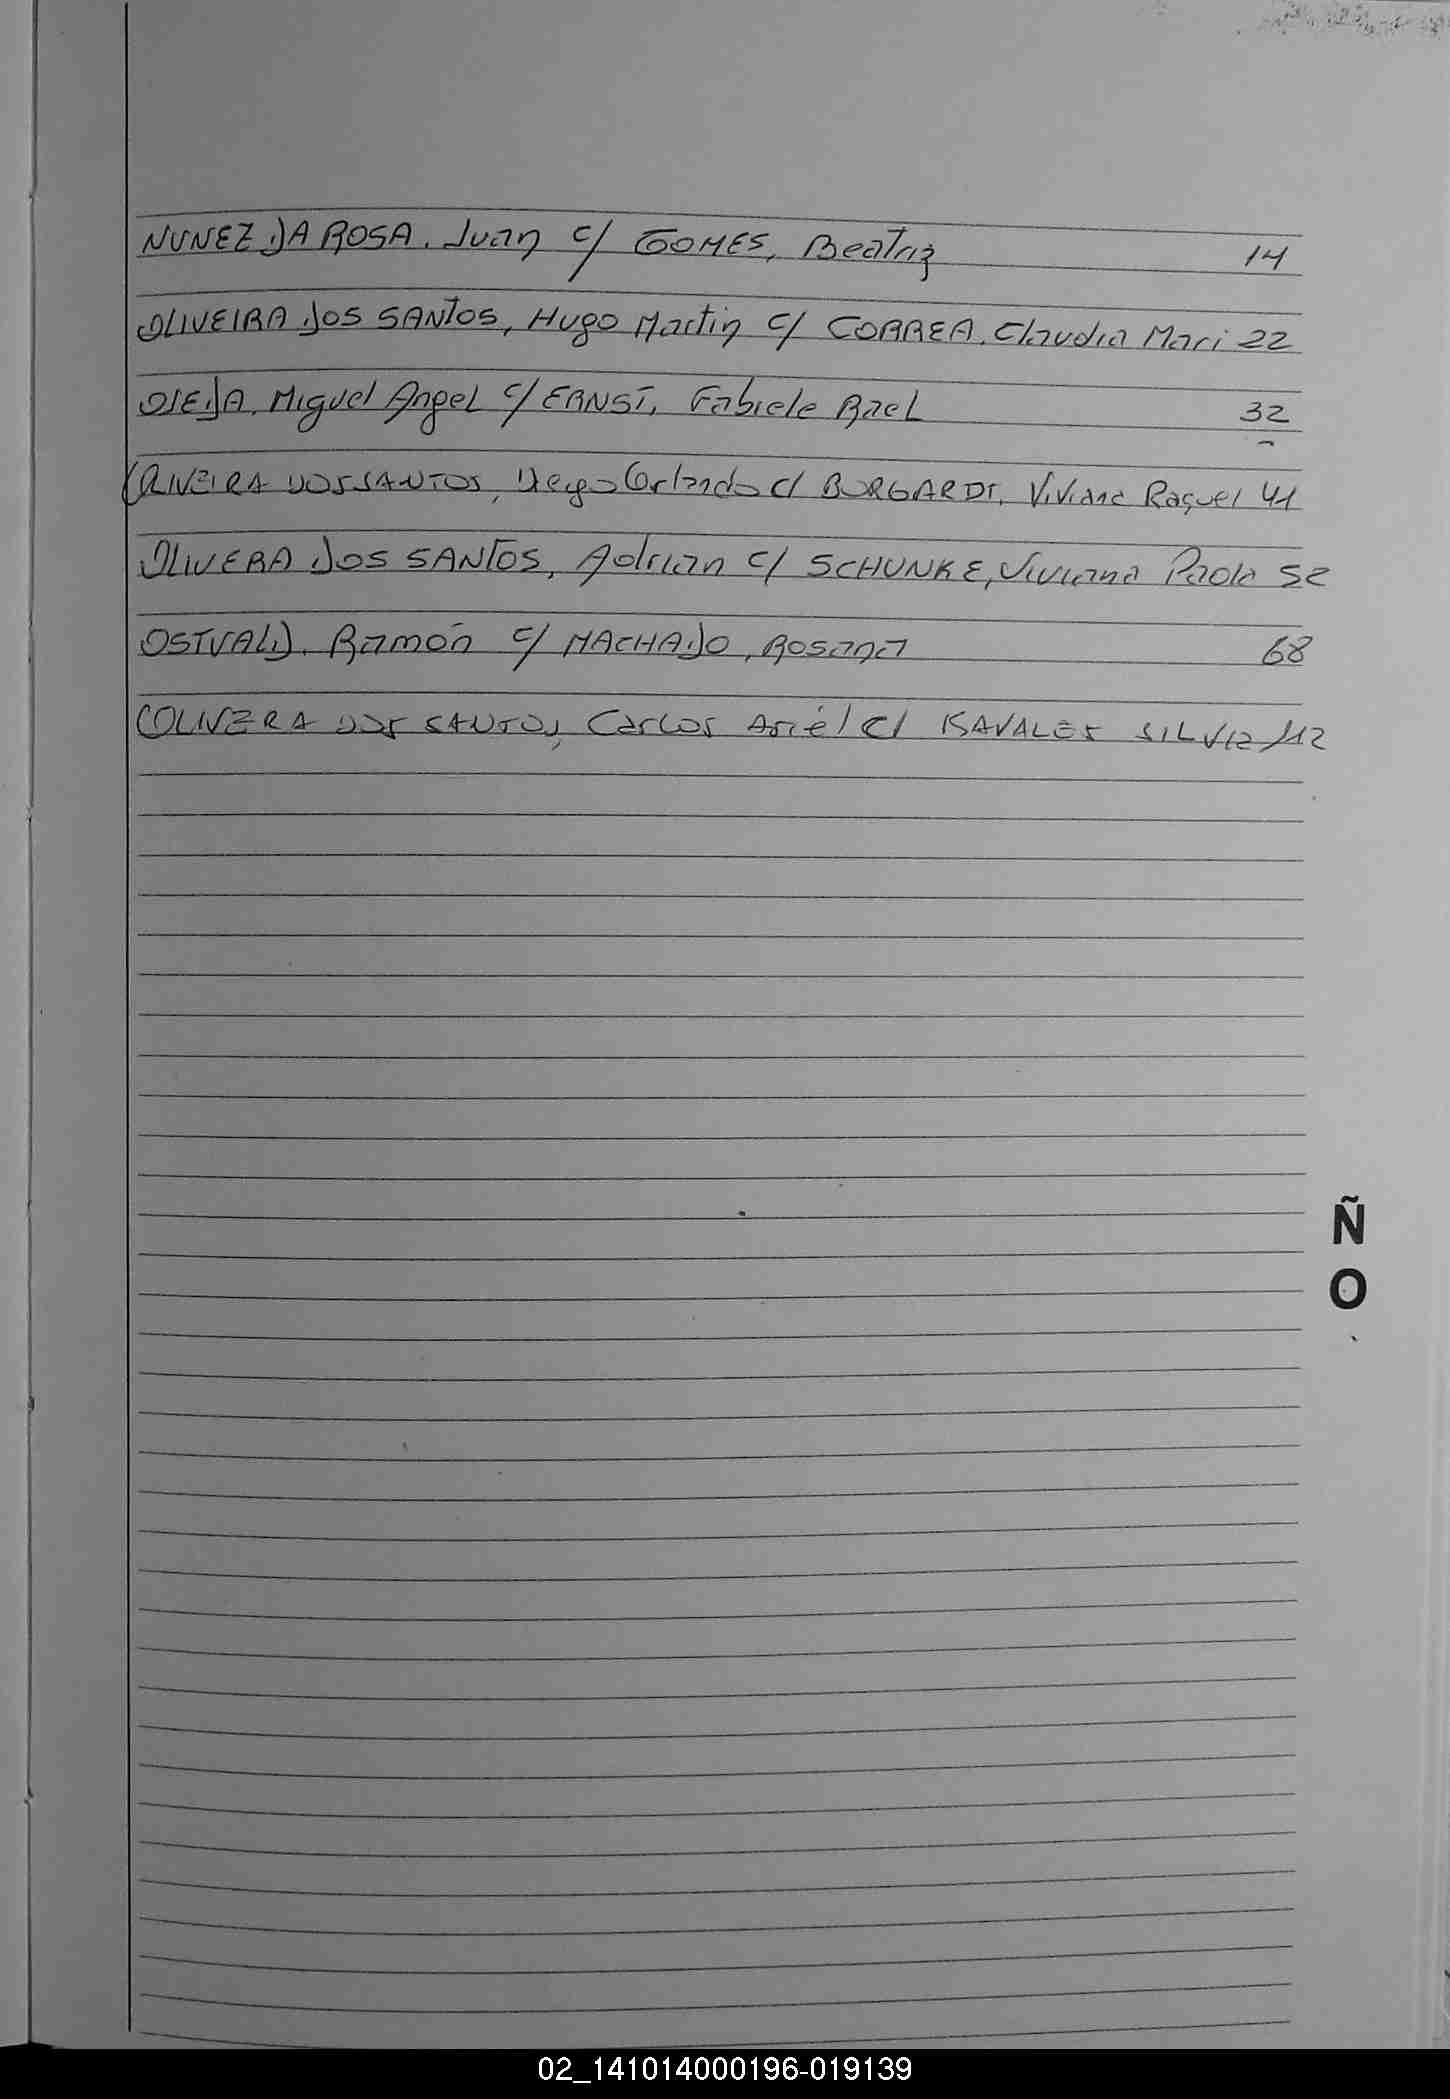 NUNEZ DA ROSA, Juan c/ GOMES, Beatriz 14
OLIVEIRA DOS SANTOS, Hugo Martin c/ CORREA, Claudia Mari 22
OJEDA, Miguel Angel c/ ERNST, Fabiele Rael 32
OLIVEIRA DOS SANTOS, Orlando c/ BURGARDT, Viviana Raquel 41
OLIVERA DOS SANTOS, Adrian c/ SCHUNKE, Viviana Paola 52
OSTVALD, Ramón c/ MACHADO, Rosana 68
OLIVERA DOS SANTOS, Carlos Ariel c/ KAVALES SILVIA 112
Ñ
O
02_141014000196-019139